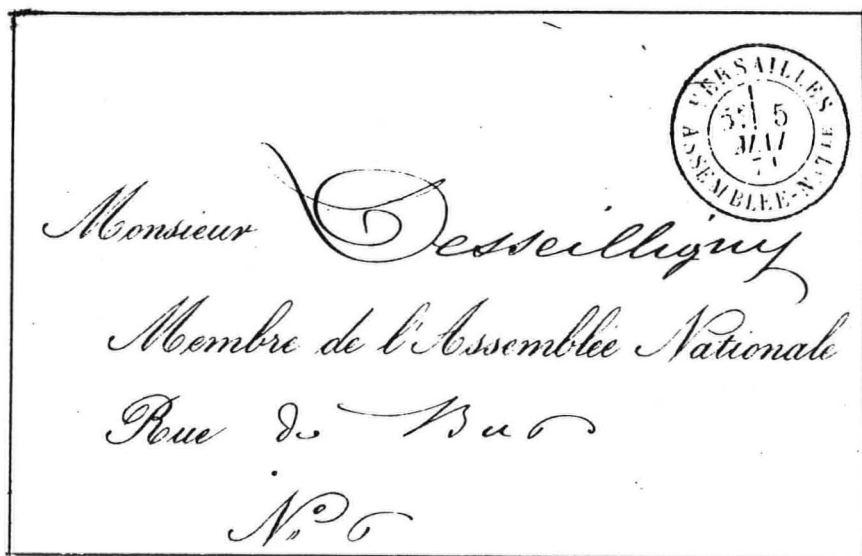 VERSAILLES
5
MAI
71
ASSEMBLÉE-NATLE
Monsieur Desseilligny
Membre de l'Assemblée Nationale
Rue du
No. 6